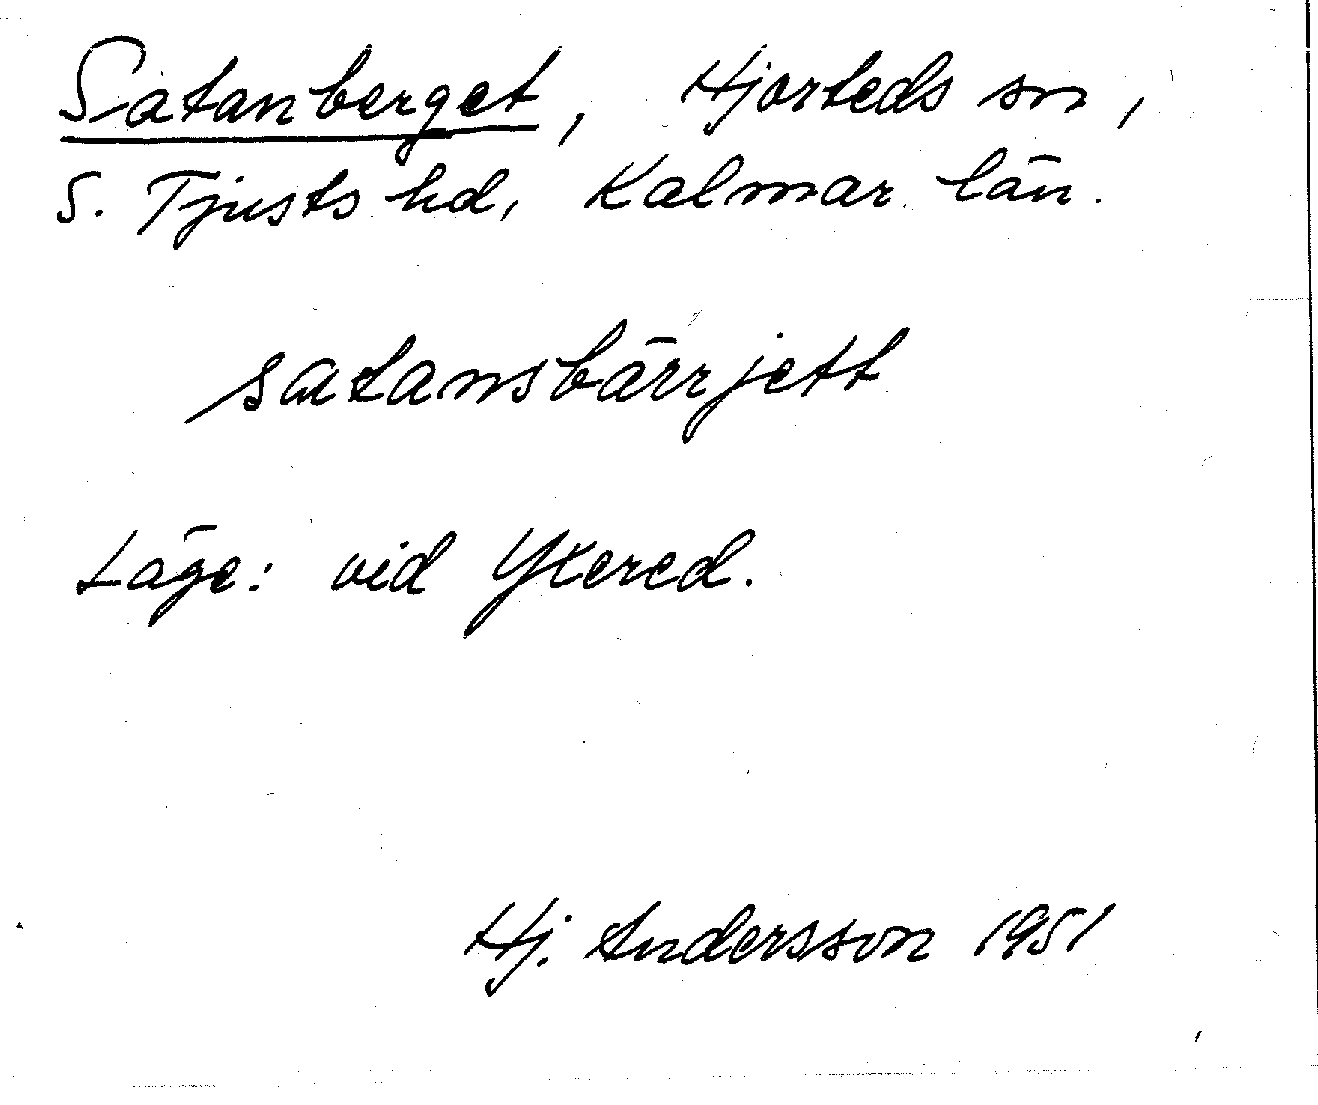 Satanberget, Hjorteds sn,
S. Tjusts hd, Kalmar län.
satansbärrjett
Läge: vid Yxered.
Hj. Andersson 1951